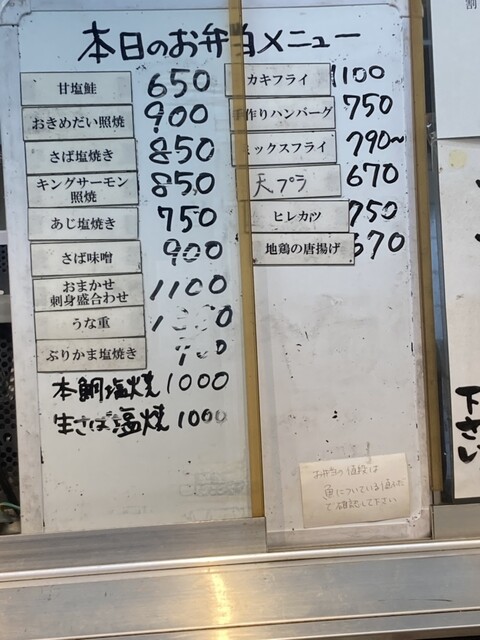 本日のお弁当メニュー
甘塩鮭 650
おきめだい照焼 900
さば塩焼き 850
キングサーモン
照焼 850
あじ塩焼き 750
さば味噌 900
おまかせ
刺身盛合わせ 1100
うな重
ぶりかま塩焼き
本鯛塩焼 1000
生さば塩焼 1000
カキフライ 1100
手作りハンバーグ 750
ミックスフライ 790~
天プラ 670
ヒレカツ 750
地鶏の唐揚げ 670
お弁当の値段は
魚についている値札
で確認して下さい
下さい
割